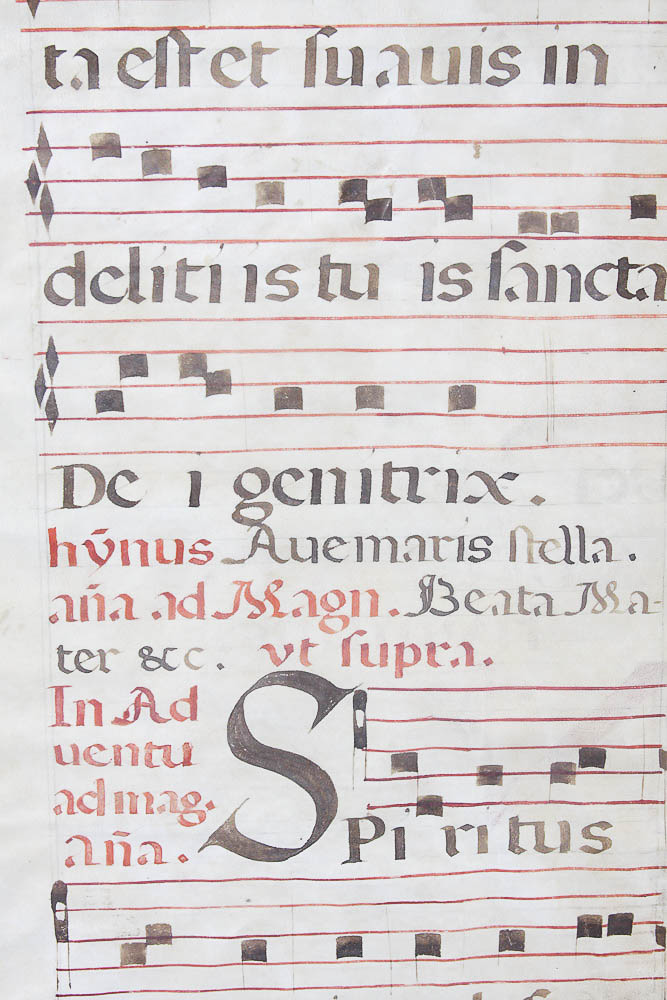 ta est et suauis in
delitiis tuis sancta
Dei genitrix.
hỹnus Aue maris stella.
aña ad Magn. Beata Ma-
ter &c. vt supra.
In Ad
uentu
ad mag.
aña.
Spiritus